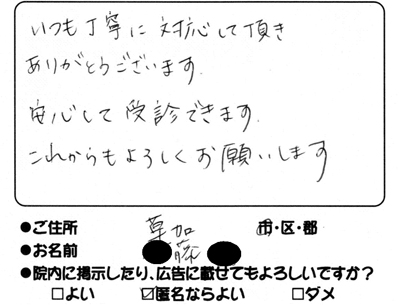 いつも丁寧に対応して頂き
ありがとうございます.
安心して受診できます.
これからもよろしくお願いします
●ご住所 草加 市・区・郡
●お名前 藤
●院内に掲示したり、広告に載せてもよろしいですか?
□よい ☑匿名ならよい □ダメ